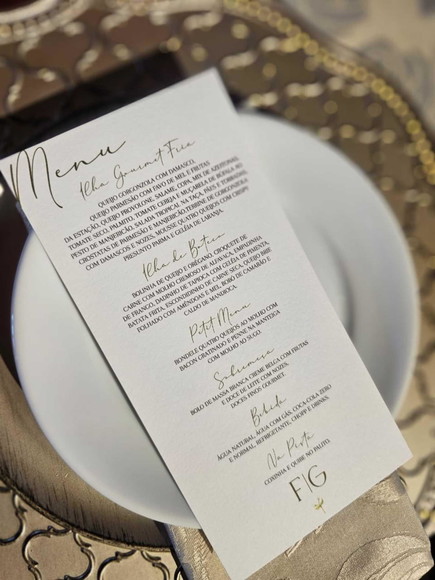 Menu
Ilha Gourmet Fria
QUEIJO GORGONZOLA COM DAMASCO,
QUEIJO PARMESÃO COM FAVO DE MEL E FRUTAS
DA ESTAÇÃO, QUEIJO PROVOLONE, SALAME, COPA, MIX DE AZEITONAS,
TOMATE SECO, PALMITO, TOMATE CEREJA E MUÇARELA DE BÚFALA AO
PESTO DE MANJERICÃO, SALADA TROPICAL NA TAÇA, PÃES E TORRADAS,
CROSTATAS DE PARMESÃO E MANJERICÃO, TERRINE DE GORGONZOLA
COM DAMASCOS E NOZES, MOUSSE QUATRO QUEIJOS COM CRISPY
PRESUNTO PARMA E GELÉIA DE LARANJA.
Ilha de Buteco
BOLINHA DE QUEIJO E ORÉGANO, CROQUETE DE
CARNE COM MOLHO CREMOSO DE ALFAVACA, EMPADINHA
DE FRANGO, DADINHO DE TAPIOCA COM GELÉIA DE PIMENTA,
BATATA FRITA, ESCONDIDINHO DE CARNE SECA, QUEIJO BRIE
FOLHADO COM AMÊNDOAS E MEL, BOBÓ DE CAMARÃO E
CALDO DE MANDIOCA.
Petit Menu
RONDELE QUATRO QUEIJOS AO MOLHO COM
BACON GRATINADO E PENNE NA MANTEIGA
COM MOLHO AO SUGO.
Sobremesa
BOLO DE MASSA BRANCA CREME BELGA COM FRUTAS
E DOCE DE LEITE COM NOZES.
DOCES FINOS GOURMET.
Bebida
ÁGUA NATURAL, ÁGUA COM GÁS, COCA COLA ZERO
E NORMAL, REFRIGETANTE, CHOPP E DRINKS.
Na Pista
COXINHA E QUIBE NO PALITO.
F|G